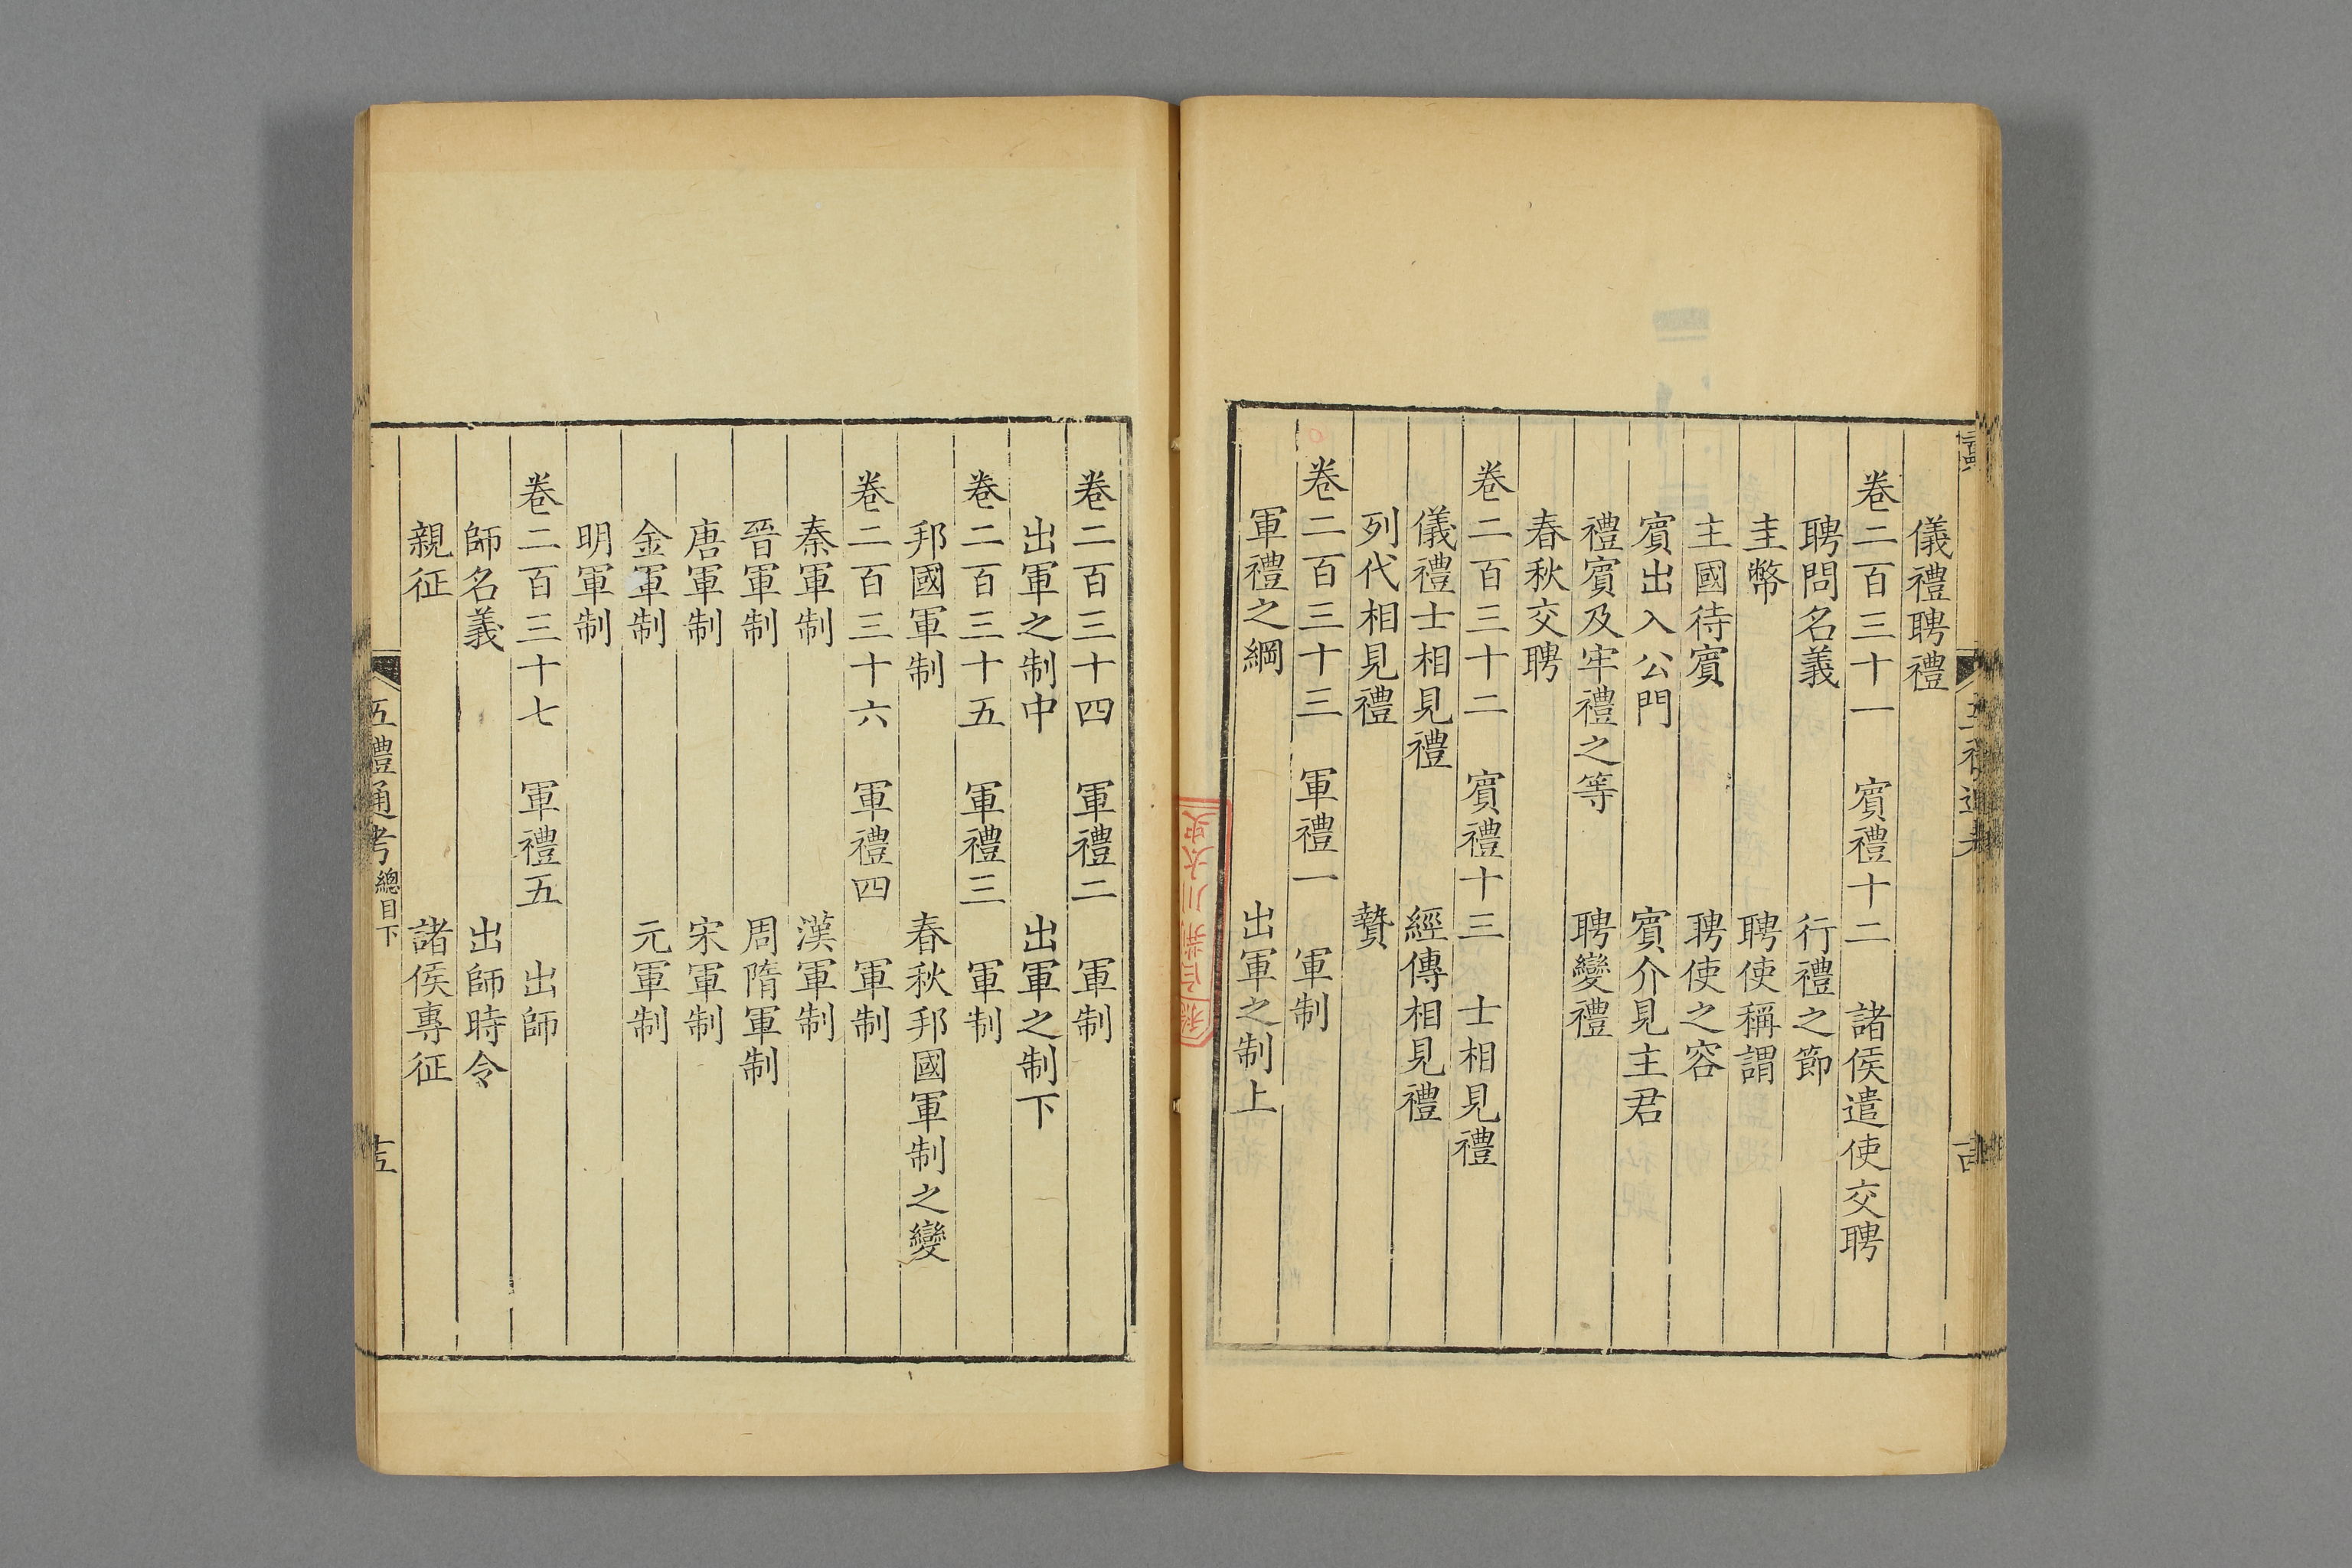 儀禮聘禮
卷二百三十一　賓禮十二　諸侯遣使交聘
聘問名義　行禮之節
圭幣　聘使稱謂
主國待賓　聘使之容
賓出入公門　賓介見主君
禮賓及牢禮之等　聘變禮
春秋交聘
卷二百三十二　賓禮十三　士相見禮
儀禮士相見禮　經傳相見禮
列代相見禮　贄
卷二百三十三　軍禮一　軍制
軍禮之綱　出軍之制上
卷二百三十四　軍禮二　軍制
出軍之制中　出軍之制下
卷二百三十五　軍禮三　軍制
邦國軍制　春秋邦國軍制之變
卷二百三十六　軍禮四　軍制
秦軍制　漢軍制
晉軍制　周隋軍制
唐軍制　宋軍制
金軍制　元軍制
明軍制
卷二百三十七　軍禮五　出師
師名義　出師時令
親征　諸侯專征
五禮通考　總目下　十五